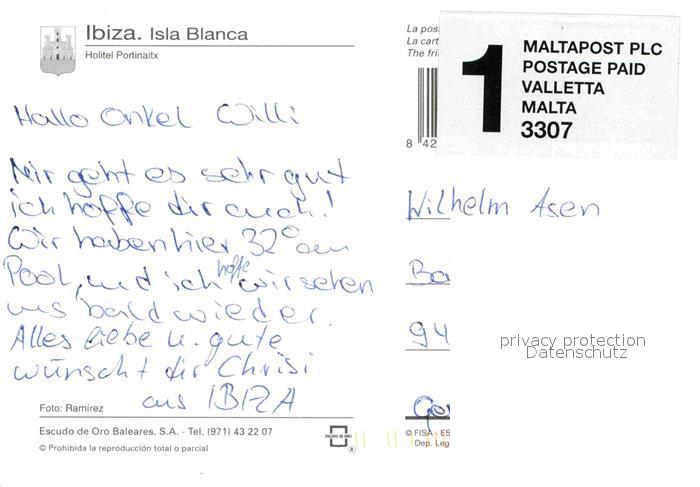 Ibiza. Isla Blanca
Holitel Portinaitx
Hallo Onkel Willi
Mir geht es sehr gut
ich hoffe dir auch!
Wir haben hier 32° am
Pool, und ich hoffe wir sehen
uns bald wieder.
Alles liebe u. gute
wünscht dir Chrisi
aus IBIZA
Foto: Ramírez
Escudo de Oro Baleares. S.A. - Tel. (971) 43 22 07
© Prohibida la reproducción total o parcial
ESCUDO DE ORO
®
La pos
La cart
The frie
8 42
1
MALTAPOST PLC
POSTAGE PAID
VALLETTA
MALTA
3307
Wilhelm Asen
Ba
94
privacy protection
Datenschutz
© FISA - ES
Dep. Leg